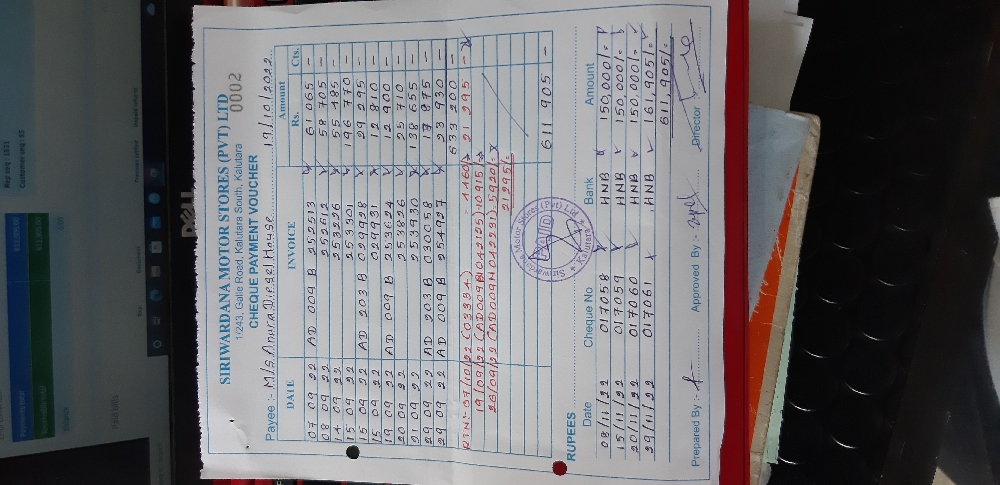 SIRIWARDANA MOTOR STORES (PVT) LTD
1/243, Galle Road, Kalutara South, Kalutara
CHEQUE PAYMENT VOUCHER 0002
Payee :- M/s. Anura Diesel House 19/10/2022
DATE INVOICE Amount
Rs. Cts.
07 09 22 AD 009 B 252513 61 065 -
08 09 22 252612 58 705 -
14 09 22 253226 55 485 -
15 09 22 253301 196 770 -
15 09 22 AD 203 B 029928 29 295 -
15 09 22 029931 12 810 -
19 09 22 AD 009 B 253624 12 900 -
20 09 22 253826 25 710 -
21 09 22 253930 138 655 -
29 09 22 AD 203 B 030058 17 875 -
29 09 22 AD 009 B 254927 23 930 -
633 200 -
RTN:- 07/10/22 (03334) - 4460/- 21 295 -
19/09/22 (AD009H042125) 10915/-
26/09/22 (AD009H042231) 5920/-
21295/-
611 905 -
RUPEES
Date Cheque No Bank Amount
08/11/22 017058 HNB 150,000/=
15/11/22 017059 HNB 150,000/=
20/11/22 017060 HNB 150,000/=
29/11/22 017061 HNB 161,905/=
611,905/=
Prepared By :- Approved By :- Director
DELL